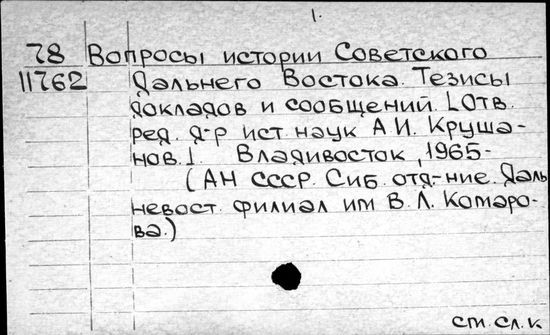 1.
78 Вопросы истории Советского
11762 Дальнего Востока. Тезисы
докладов и сообщений. [Отв.
ред. д-р ист. наук А.И. Круша-
нов.]. Владивосток, 1965-
(АН СССР. Сиб. отд-ние. Даль
невост. филиал им В.Л. Комаро-
ва.)
см. сл. к